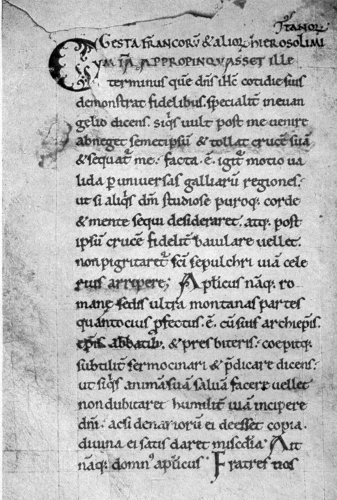 tanoꝝ
GESTA francorū & alioꝝ HIEROSOLIMI
CUM IĀ APPROPINQUASSET ILLE
terminus quē dn̄s ih̄c cotidie suis
demonstrat fidelibus. specialit̄ in euan
gelio dicens. siq̄s uult post me uenire
abneget semetipsū & tollat crucē suā
& sequat̄ me. facta .ē. igit̄ motio ua
lida ꝑ uniuersas galliarū regiones.
ut si aliq̄s dm̄ studiose puroq; corde
& mente sequi desideraret. atq; post
ipsū crucē fidelit̄ baiulare uellet.
non pigritaret̄ sc̄i sepulchri uiā cele
rius arripere; Ap̄licus nāq; ro
mane sedis ultra montanas partes
quantocius ꝓfectus .ē. cū suis archiep̄is.
ep̄is. abbatib; & presbiteris. coepitq;
subtilit̄ sermocinari & p̄dicare dicens.
ut siq̄s animā suā saluā facere uellet
non dubitaret humilit̄ uiā incipere
dn̄i. ac si denariorū ei deesset copia.
diuina ei satis daret mis̄cdia. Ait
nāq; domnꝰ ap̄licus Fratres uos